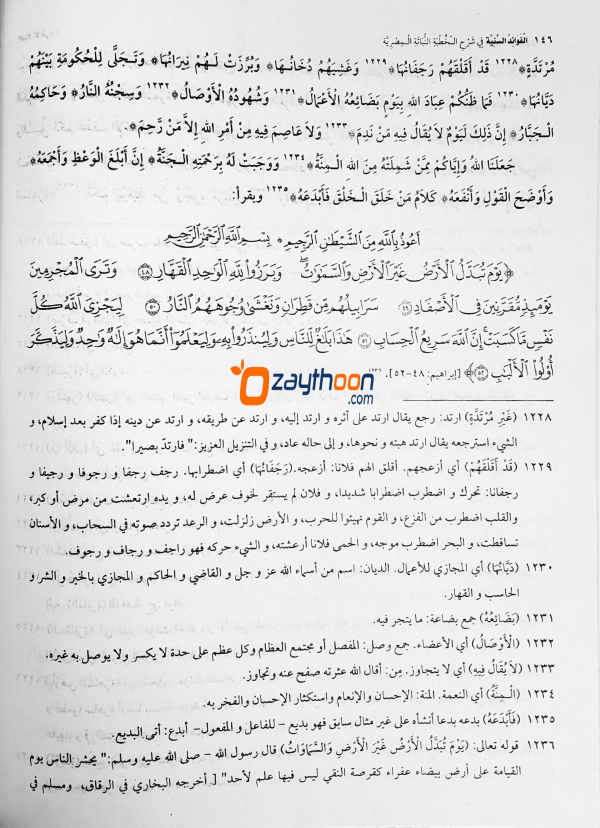 ١٤٦ الْفَوَائِدُ السَّنِيَّة فِي شَرْحِ الـخُطْبَةِ النُّبَاتَةِ الْـمِصْرِيَّة
مُرْتَدَّةٍ﴿١٢٢٨ قَدْ أَقْلَقَهُمْ رَجَفَاتُهَا﴾١٢٢٩ وَغَشِيَهُمْ دُخَانُهَا﴾ وَبُرِّزَتْ لَهُمْ نِيرَانُهَا﴾ وَتَجَلَّى لِلْحُكُومَةِ بَيْنَهُمْ
دَيَّانُهَا﴾١٢٣٠ فَمَا ظَنُّكُمْ عِبَادَ اللهِ بِيَوْمٍ بَضَائِعُهُ الْأَعْمَالُ﴾١٢٣١ وَشُهُودُهُ الْأَوْصَالُ﴾١٢٣٢ وَسِجْنُهُ النَّارُ﴾ وَحَاكِمُهُ
الْجَبَّارُ﴾ إِنَّ ذَلِكَ لَيَوْمٌ لاَ يُقَالُ فِيهِ مَنْ نَدِمَ﴾١٢٣٣ وَلاَ عَاصِمَ فِيهِ مِنْ أَمْرِ اللهِ إِلاَّ مَنْ رَّحِمَ﴾.
جَعَلَنَا اللهُ وَإِيَّاكُمْ مِمَّنْ شَمِلَتْهُ مِنَ اللهِ الْـمِنَّةُ﴾١٢٣٤ وَوَجَبَتْ لَهُ بِرَحْمَتِهِ الْـجَنَّةُ﴾ إِنَّ أَبْلَغَ الْوَعْظِ وَأَجْمَعَهُ﴾
وَأَوْضَحَ الْقَوْلِ وَأَنْفَعَهُ﴾ كَلاَمُ مَنْ خَلَقَ الْـخَلْقَ فَأَبْدَعَهُ﴾١٢٣٥ ويقرأ:
أَعُوذُ بِاللَّهِ مِنَ الشَّيْطَانِ الرَّجِيمِ * بِسْمِ اللَّهِ الرَّحْمَٰنِ الرَّحِيمِ
﴿يَوْمَ تُبَدَّلُ ٱلْأَرْضُ غَيْرَ ٱلْأَرْضِ وَٱلسَّمَٰوَٰتُ ۖ وَبَرَزُوا۟ لِلَّهِ ٱلْوَٰحِدِ ٱلْقَهَّارِ ٤٨ وَتَرَى ٱلْمُجْرِمِينَ
يَوْمَئِذٍ مُّقَرَّنِينَ فِى ٱلْأَصْفَادِ ٤٩ سَرَابِيلُهُم مِّن قَطِرَانٍ وَتَغْشَىٰ وُجُوهَهُمُ ٱلنَّارُ ٥٠ لِيَجْزِىَ ٱللَّهُ كُلَّ
نَفْسٍ مَّا كَسَبَتْ ۚ إِنَّ ٱللَّهَ سَرِيعُ ٱلْحِسَابِ ٥١ هَٰذَا بَلَٰغٌ لِّلنَّاسِ وَلِيُنذَرُوا۟ بِهِۦ وَلِيَعْلَمُوٓا۟ أَنَّمَا هُوَ إِلَٰهٌ وَٰحِدٌ وَلِيَذَّكَّرَ
أُو۟لُوا۟ ٱلْأَلْبَٰبِ ٥٢﴾ [إبراهيم: ٤٨-٥٢]. ١٢٣٦
Ozaythoon
.com
١٢٢٨ (غَيْرَ مُرْتَدَّةٍ) ارتد: رجع يقال ارتد على أثره و ارتد إليه، و ارتد عن طريقه، و ارتد عن دينه إذا كفر بعد إسلام، و
الشيء استرجعه يقال ارتد هبته و نحوها، و إلى حاله عاد، و في التنزيل العزيز:" فارتدّ بصيرا".
١٢٢٩ (قَدْ أَقْلَقَهُمْ) أي أزعجهم. أقلق الهم فلانا: أزعجه.(رَجَفَاتُهَا) أي اضطرابها. رجف رجفا و رجوفا و رجيفا و
رجفانا: تحرك و اضطرب اضطرابا شديدا، و فلان لم يستقر لخوف عرض له، و يده ارتعشت من مرض أو كبر،
والقلب اضطرب من الفزع، و القوم تهيئوا للحرب، و الأرض زلزلت، و الرعد تردد صوته في السحاب، و الأسنان
تساقطت، و البحر اضطرب موجه، و الحمى فلانا أرعشته، و الشيء حركه فهو راجف و رجاف و رجوف.
١٢٣٠ (دَيَّانُهَا) أي المجازي للأعمال. الديان: اسم من أسماء الله عز و جل و القاضي و الحاكم و المجازي بالخير و الشر و
الحاسب و القهار.
١٢٣١ (بَضَائِعُهُ) جمع بضاعة: ما يتجر فيه.
١٢٣٢ (الْأَوْصَالُ) أي الأعضاء. جمع وصل: المفصل أو مجتمع العظام وكل عظم على حدة لا يكسر ولا يوصل به غيره.
١٢٣٣ (لاَ يُقَالُ فِيهِ) أي لا يتجاوز. مِن: أقال الله عثرته صفح عنه وتجاوز.
١٢٣٤ (الْـمِنَّةُ) أي النعمة. المنة: الإحسان والإنعام واستكثار الإحسان والفخر به.
١٢٣٥ (فَأَبْدَعَهُ) بدعه بدعا أنشأه على غير مثال سابق فهو بديع - للفاعل و المفعول- أبدع: أتى البديع.
١٢٣٦ قوله تعالى: (يَوْمَ تُبَدَّلُ الْأَرْضُ غَيْرَ الْأَرْضِ وَالسَّمَاوَاتُ) قال رسول الله - صلى الله عليه وسلم:" يحشر الناس يوم
القيامة على أرض بيضاء عفراء كقرصة النقي ليس فيها علم لأحد" [ أخرجه البخاري في الرقاق، ومسلم في